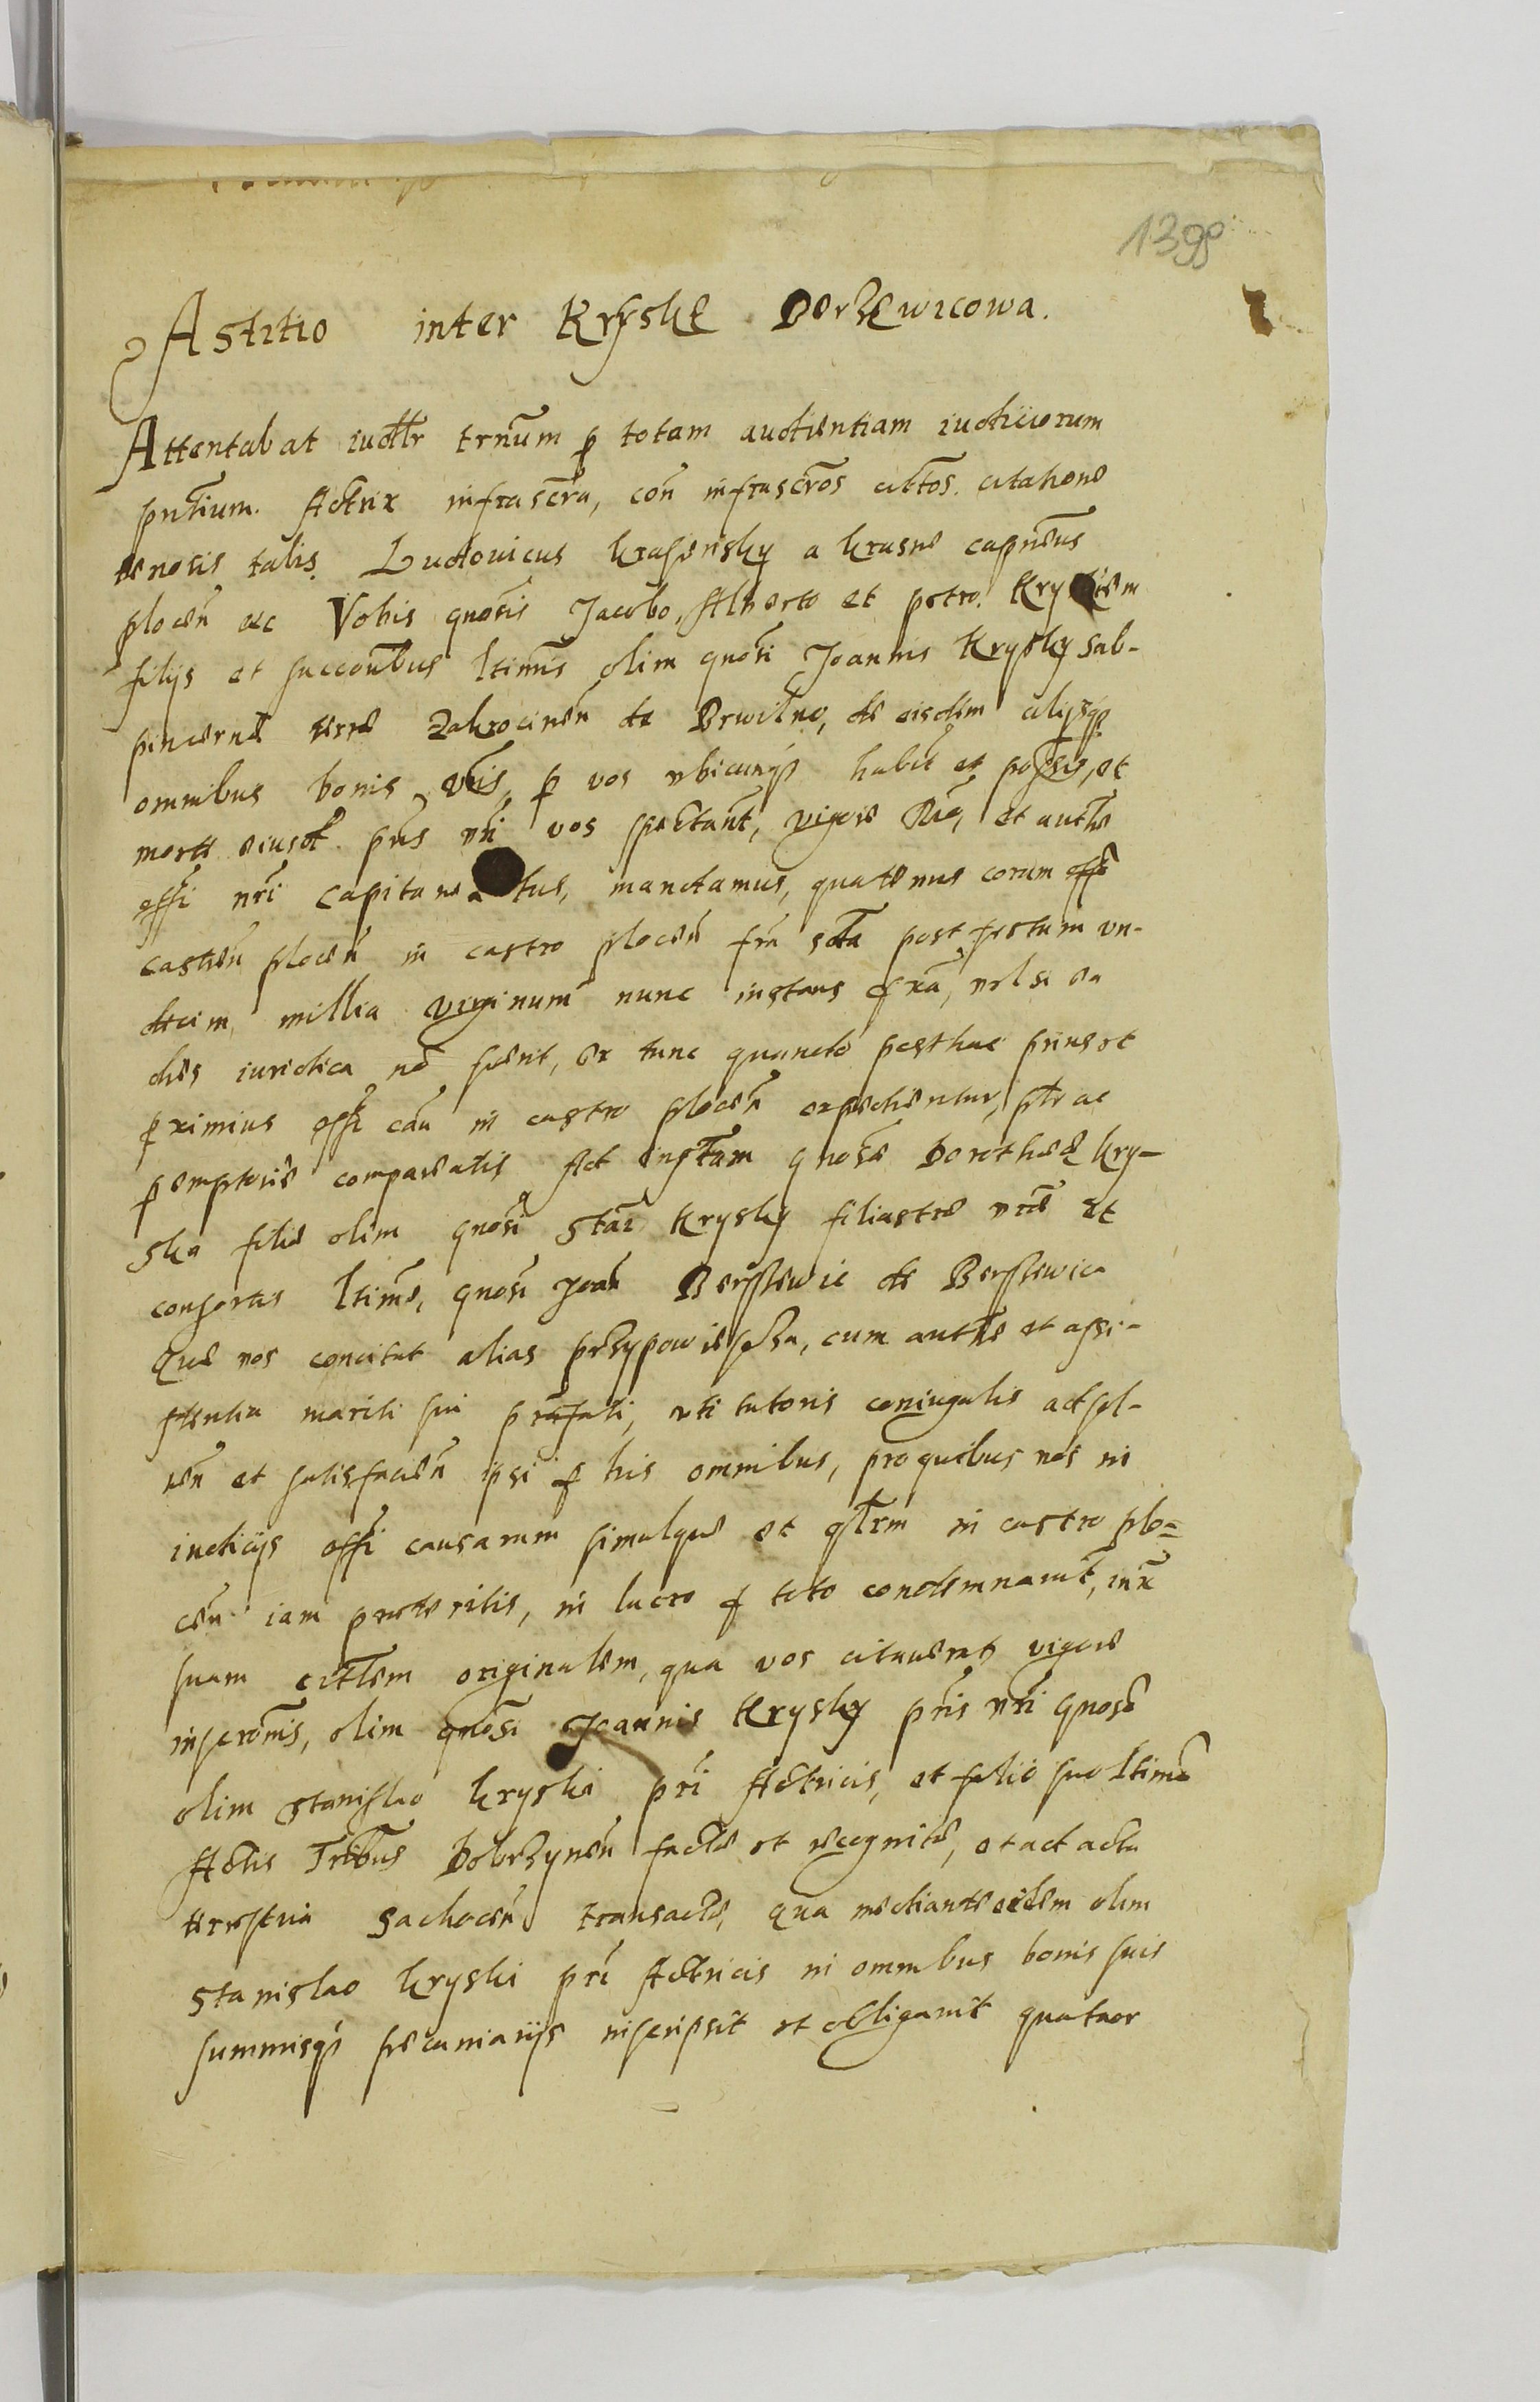 1399
Astitio inter Kryske Berzewicowa.
Attentabat iudlr trnum p totam audientiam iudiciorum
pntium. Actrix infrascra, con infrascros cittos. citatione
tenoris talis. Ludovicus Krasinsky a Krasne capneus
plocen etc Vobis gnosis Jacobo, Alberto et petro. Kryskiem
filijs et succoribus ltimis olim gnosi Joannis Krysky sub-
pincerne terre Zakrocinen de Brwilno, de eisdem alijsqz
omnibus bonis vris, p vos ubicunqz habit et possis, et
morte eiusd. pris vri vos spectant, vigore Rio, et authe
offi nri Capitaneatus, mandamus, quatenus coram offo
castren plocen in castro plocen fria scda post festum un-
decim millia virginum nunc instans pxa, vel si ea
dies iuridica no fuerit, ex tunc quando posthac prius et
pximius offi cau in castro plocen expedientur, ptr ac
pemptorie compareatis Ad instam gnose Dorothee Kry-
ska filie olim gnosi Stai Krysky filiastre vre et
consortis ltime, gnosi Joan Berssewic de Berssewica
Que vos concitat alias przypowiessza, cum authe et assi-
stentia mariti sui prafati, uti tutoris coniugalis ad sol-
ven et satisfacien ipsi p his omnibus, pro quibus vos in
iudicijs offi causarum simulque et qlrm in castro plo-
cen iam preteritis, in lucro p toto condemnavit, iux
suam citlem originalem, qua vos citaverat vigore
inscronis, olim gnosi Joannis Krysky pris vri gnoso
olim Stanislao Kryski pri Actricis, et filio suo ltimo
Actis Tribus Dobrzynen facte et recognite, et ad acta
terrestria Sachocen transacte, qua mediante eidem olim
Stanislao Kryski pri Actricis in omnibus bonis suis
summisqz pecuniarijs inscripsit et obligavit quatuor